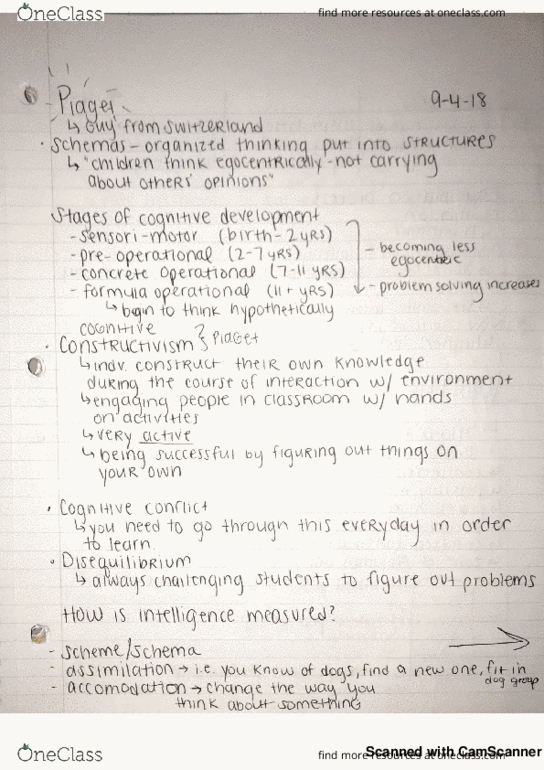 OneClass
find more resources at oneclass.com
Piaget
9-4-18
↳ Guy from Switzerland
· Schemas - organized thinking put into structures
↳ "children think egocentrically - not carrying
about others' opinions"
Stages of cognitive development
- sensori-motor (birth - 2 yrs)
- pre-operational (2-7 yrs)
- concrete operational (7-11 yrs)
- formula operational (11 + yrs)
↳ begin to think hypothetically
- becoming less
egocentric
- problem solving increases
cognitive
· Constructivism } Piaget
↳ indv. construct their own knowledge
during the course of interaction w/ environment
↳ engaging people in classroom w/ hands
on activities
↳ very active
↳ being successful by figuring out things on
your own
· Cognitive conflict
↳ you need to go through this everyday in order
to learn.
· Disequilibrium
↳ always challenging students to figure out problems
How is intelligence measured?
- scheme/schema
- assimilation → i.e. you know of dogs, find a new one, fit in
dog group
- accomodation → change the way you
think about something
OneClass
find more resources at oneclass.com
Scanned with CamScanner